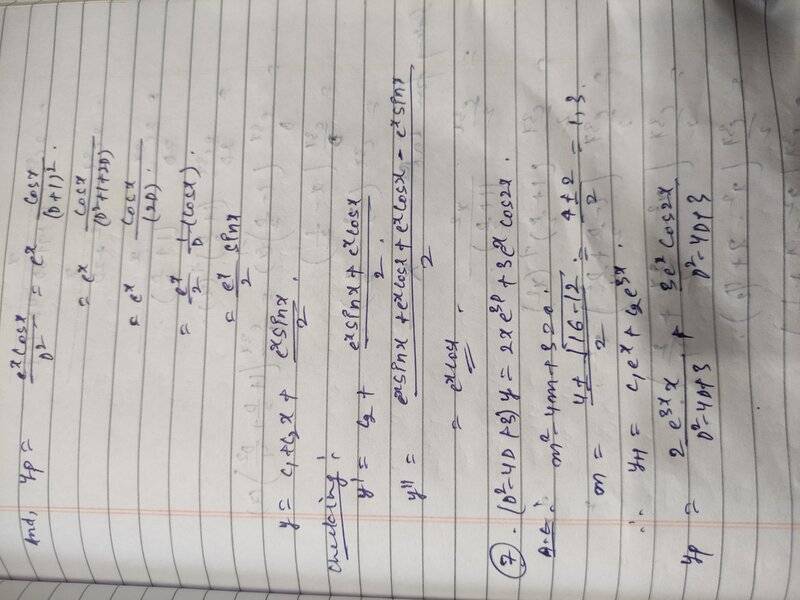 And, yp = e^x cosx / D² = e^x cosx / (D+1)².
= e^x cosx / (D²+1+2D)
= e^x cosx / (2D).
= e^x/2 1/D (cosx).
= e^x/2 sinx
y = c₁+c₂x + e^x sinx / 2.
Checking:
y' = c₂ + (e^x sinx + e^x cosx) / 2.
y'' = (e^x sinx + e^x cosx + e^x cosx - e^x sinx) / 2
= e^x cosx.
(7). (D²-4D+3) y = 2x e^3x + 3e^x cos2x.
A.E: m²-4m+3=0.
m = (4±√16-12) / 2 = (4±2) / 2 = 1,3.
∴ yH = c₁e^x + c₂e^3x.
yp = 2 e^3x x / (D²-4D+3) + 3e^x cos2x / (D²-4D+3)